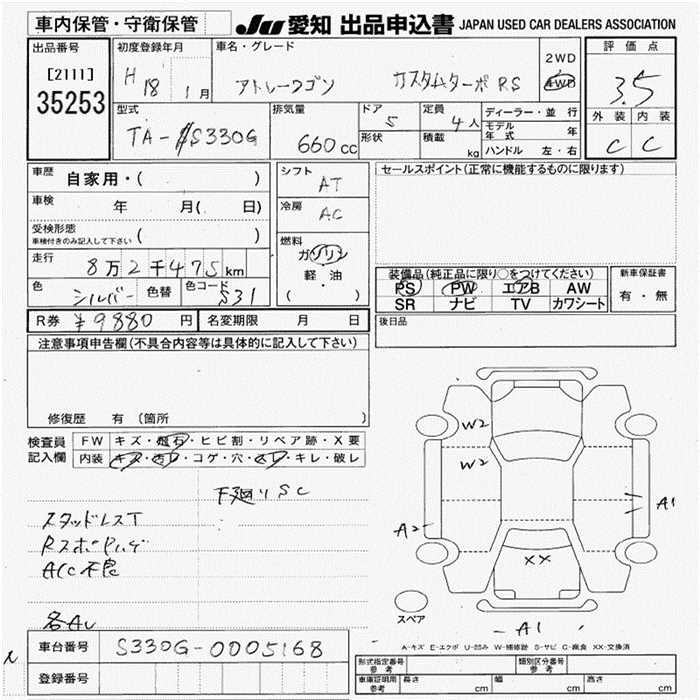 車内保管・守衛保管
JU 愛知 出品申込書 JAPAN USED CAR DEALERS ASSOCIATION
出品番号
[2111]
35253
初度登録年月
H 18 1月
車名・グレード
アトレーワゴン カスタムターボRS
2WD
4WD
評価点
3.5
外装 内装
C C
型式
TA-S330G
排気量
660cc
ドア
5
形状
定員
4人
積載
kg
ディーラー・並行
モデル年式 年
ハンドル 左・右
車歴 自家用・( )
車検 年 月( 日)
受検形態
車検付きのみ記入して下さい ( )
走行 8万2千475km
色 シルバー 色替 色コード S31
シフト AT
冷房 AC
燃料
ガソリン
軽・油
( )
セールスポイント(正常に機能するものに限ります)
装備品(純正品に限り○をつけてください)
PS PW エアB AW
SR ナビ TV カワシート
新車保証書
有・無
R券 ¥9880円 名変期限 月 日
後日品
注意事項申告欄(不具合内容等は具体的に記入して下さい)
修復歴 有 〔箇所 〕
検査員記入欄
FW キズ・飛石・ヒビ割・リペア跡・X要
内装 キズ・汚レ・コゲ・穴・スレ・キレ・破レ
下廻りSC
スタッドレスT
Rスポイラー
A/C不良
各AU
W2
W2
A2
A1
XX
スペア
A1
A-キズ E-エクボ U-凹み W-補修跡 S-サビ C-腐食 XX-交換済
車台番号 S330G-0005168
登録番号
形式指定番号 参考
類別区分番号 参考
車庫証明用 参考 長さ cm 幅 cm 高さ cm